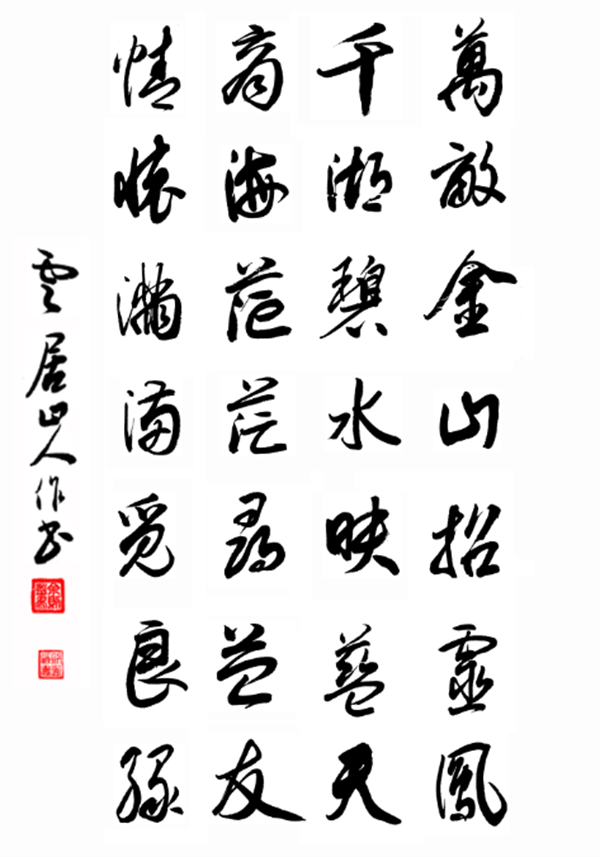 萬畝金山招靈鳳
千湖碧水映藍天
商海茫茫尋益友
情懷滿滿覓良緣
雲居山人作書